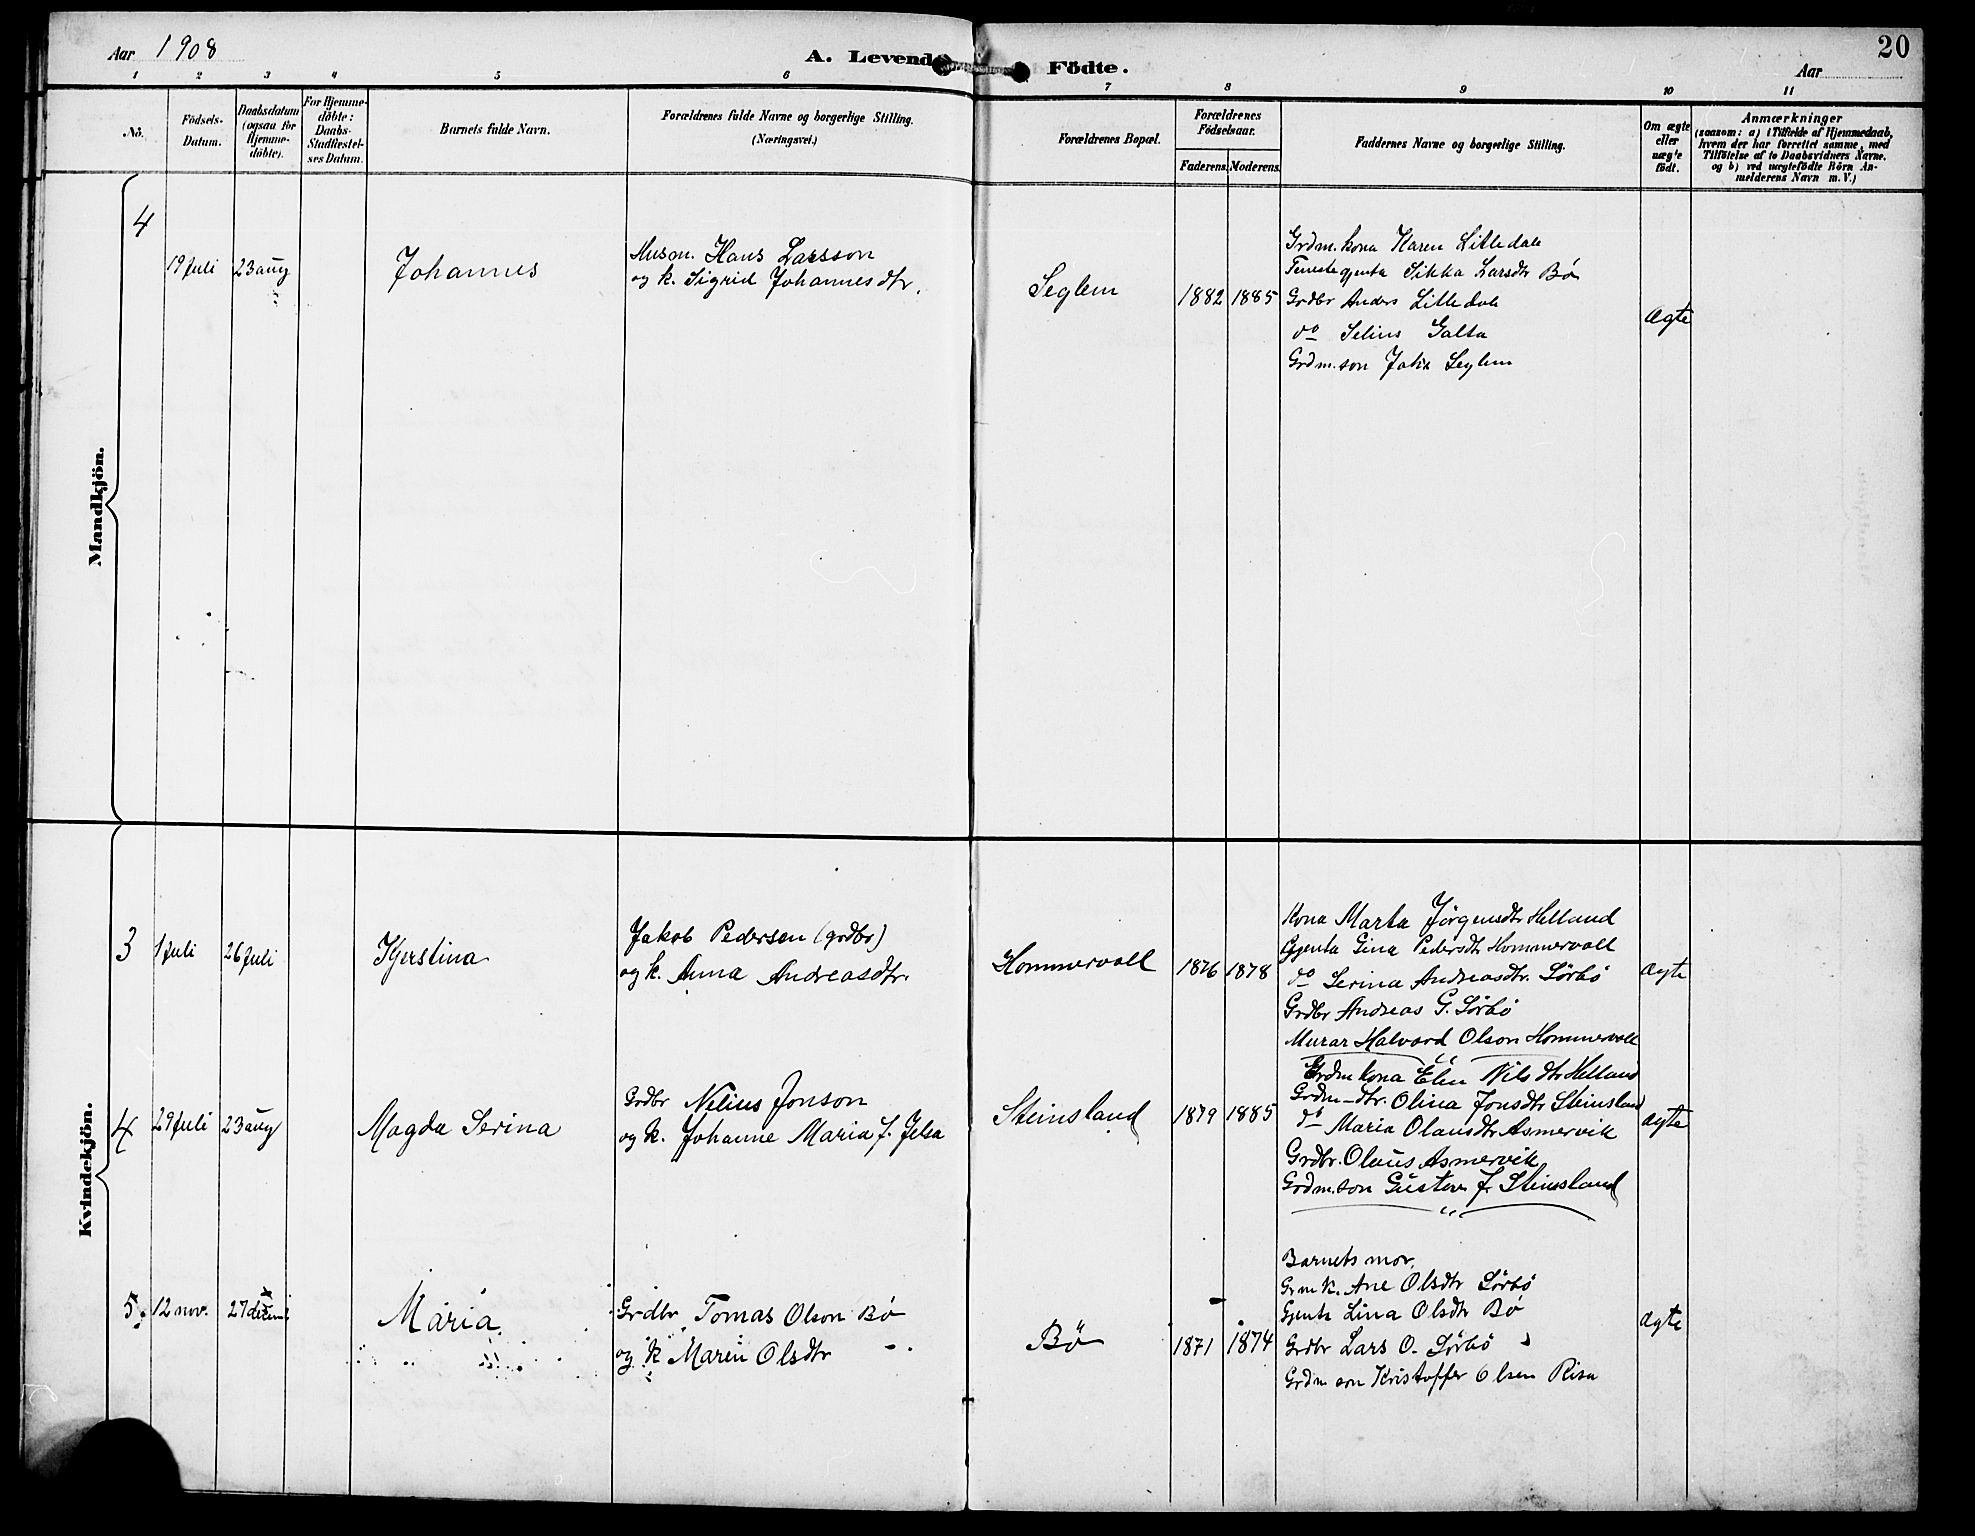 Aar 1908
A. Levende Födte.
20
Aar
1 2 3 4 5 6 7 8 9 10 11
No.
Födsels-
Datum.
Daabsdatum
(ogsaa for
Hjemme-
döbte).
For Hjemme-
döbte:
Daabs-
Stadfestel-
ses Datum.
Barnets fulde Navn.
Forældrenes fulde Navne og borgerlige Stilling.
(Næringsvei.)
Forældrenes Bopæl.
Forældrenes
Födselsaar.
Faderens. Moderens.
Faddernes Navne og borgerlige Stilling.
Om ægte
eller
uægte
födt.
Anmærkninger
(saasom: a) i Tilfælde af Hjemmedaab,
hvem der har forrettet samme, med
Tilföielse af to Daabsvidners Navne.
og b) ved uægtefödte Börn An-
melderens Navn m. V.)
Mandkjön.
4
19 juli
23 aug
Johannes
Husm. Hans Larsson
og k. Sigrid Johannesdtr.
Seglem
1882
1885
Grdm. kona Karen Lilledale
Tenestegjenta Sikka Larsdtr Bø
Grdbr Anders Lilledale
do Selius Galta
Grdm. son Seglem
ægte
Kvindekjön.
3
1 juli
26 juli
Kjerstina
Jakob Pedersen (grdbr)
og k. Anna Andreasdtr.
Hommervoll
1876
1878
Kona Marta Jörgensdtr Helland
Gjenta Gina Pedersdtr Hommervoll
do Serina Andreasdtr. Sörbö
Grdbr Andreas G. Sörbö
Murar Halvard Olson Hommervoll
ægte
4
29 juli
23 aug
Magda Serina
Grdbr Nelius Jonson
og k. Johanne Maria J. Jelsa
Steinsland
1879
1885
Grdm kona Elen Nilsdtr Helland
Grdm-dtr. Olina Jonsdtr Steinsland
do Maria Olausdtr Asmervik
Grdbr. Olaus Asmervik
Grdm. son Gustav J. Steinsland
ægte
5
12 nov.
27 decem
Maria
Grdbr. Tomas Olson Bø
og k Maren Olsdtr
Bø
1871
1874
Barnets mor.
Grm k. Ane Olsdtr Sörbö
Gjenta Lina Olsdtr Bø
Grdbr Lars O. Sörbö
Grdm son Kristoffer Olsen Risa
ægte